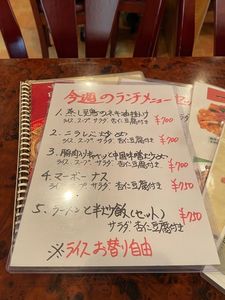 今週のランチメニュー
1. 蒸し豆鶏のネギ油掛け
ライス スープ サラダ 杏仁豆腐付き ¥700
2. ニラレバ炒め
ライス スープ サラダ 杏仁豆腐付き ¥700
3. 豚肉入りキャベツと中国味噌炒め
ライス スープ サラダ 杏仁豆腐付き ¥700
4. マーボーナス
ライス スープ サラダ 杏仁豆腐付き ¥750
5. ラーメンと半炒飯(セット)
サラダ 杏仁豆腐付き ¥750
※ライスお替り自由